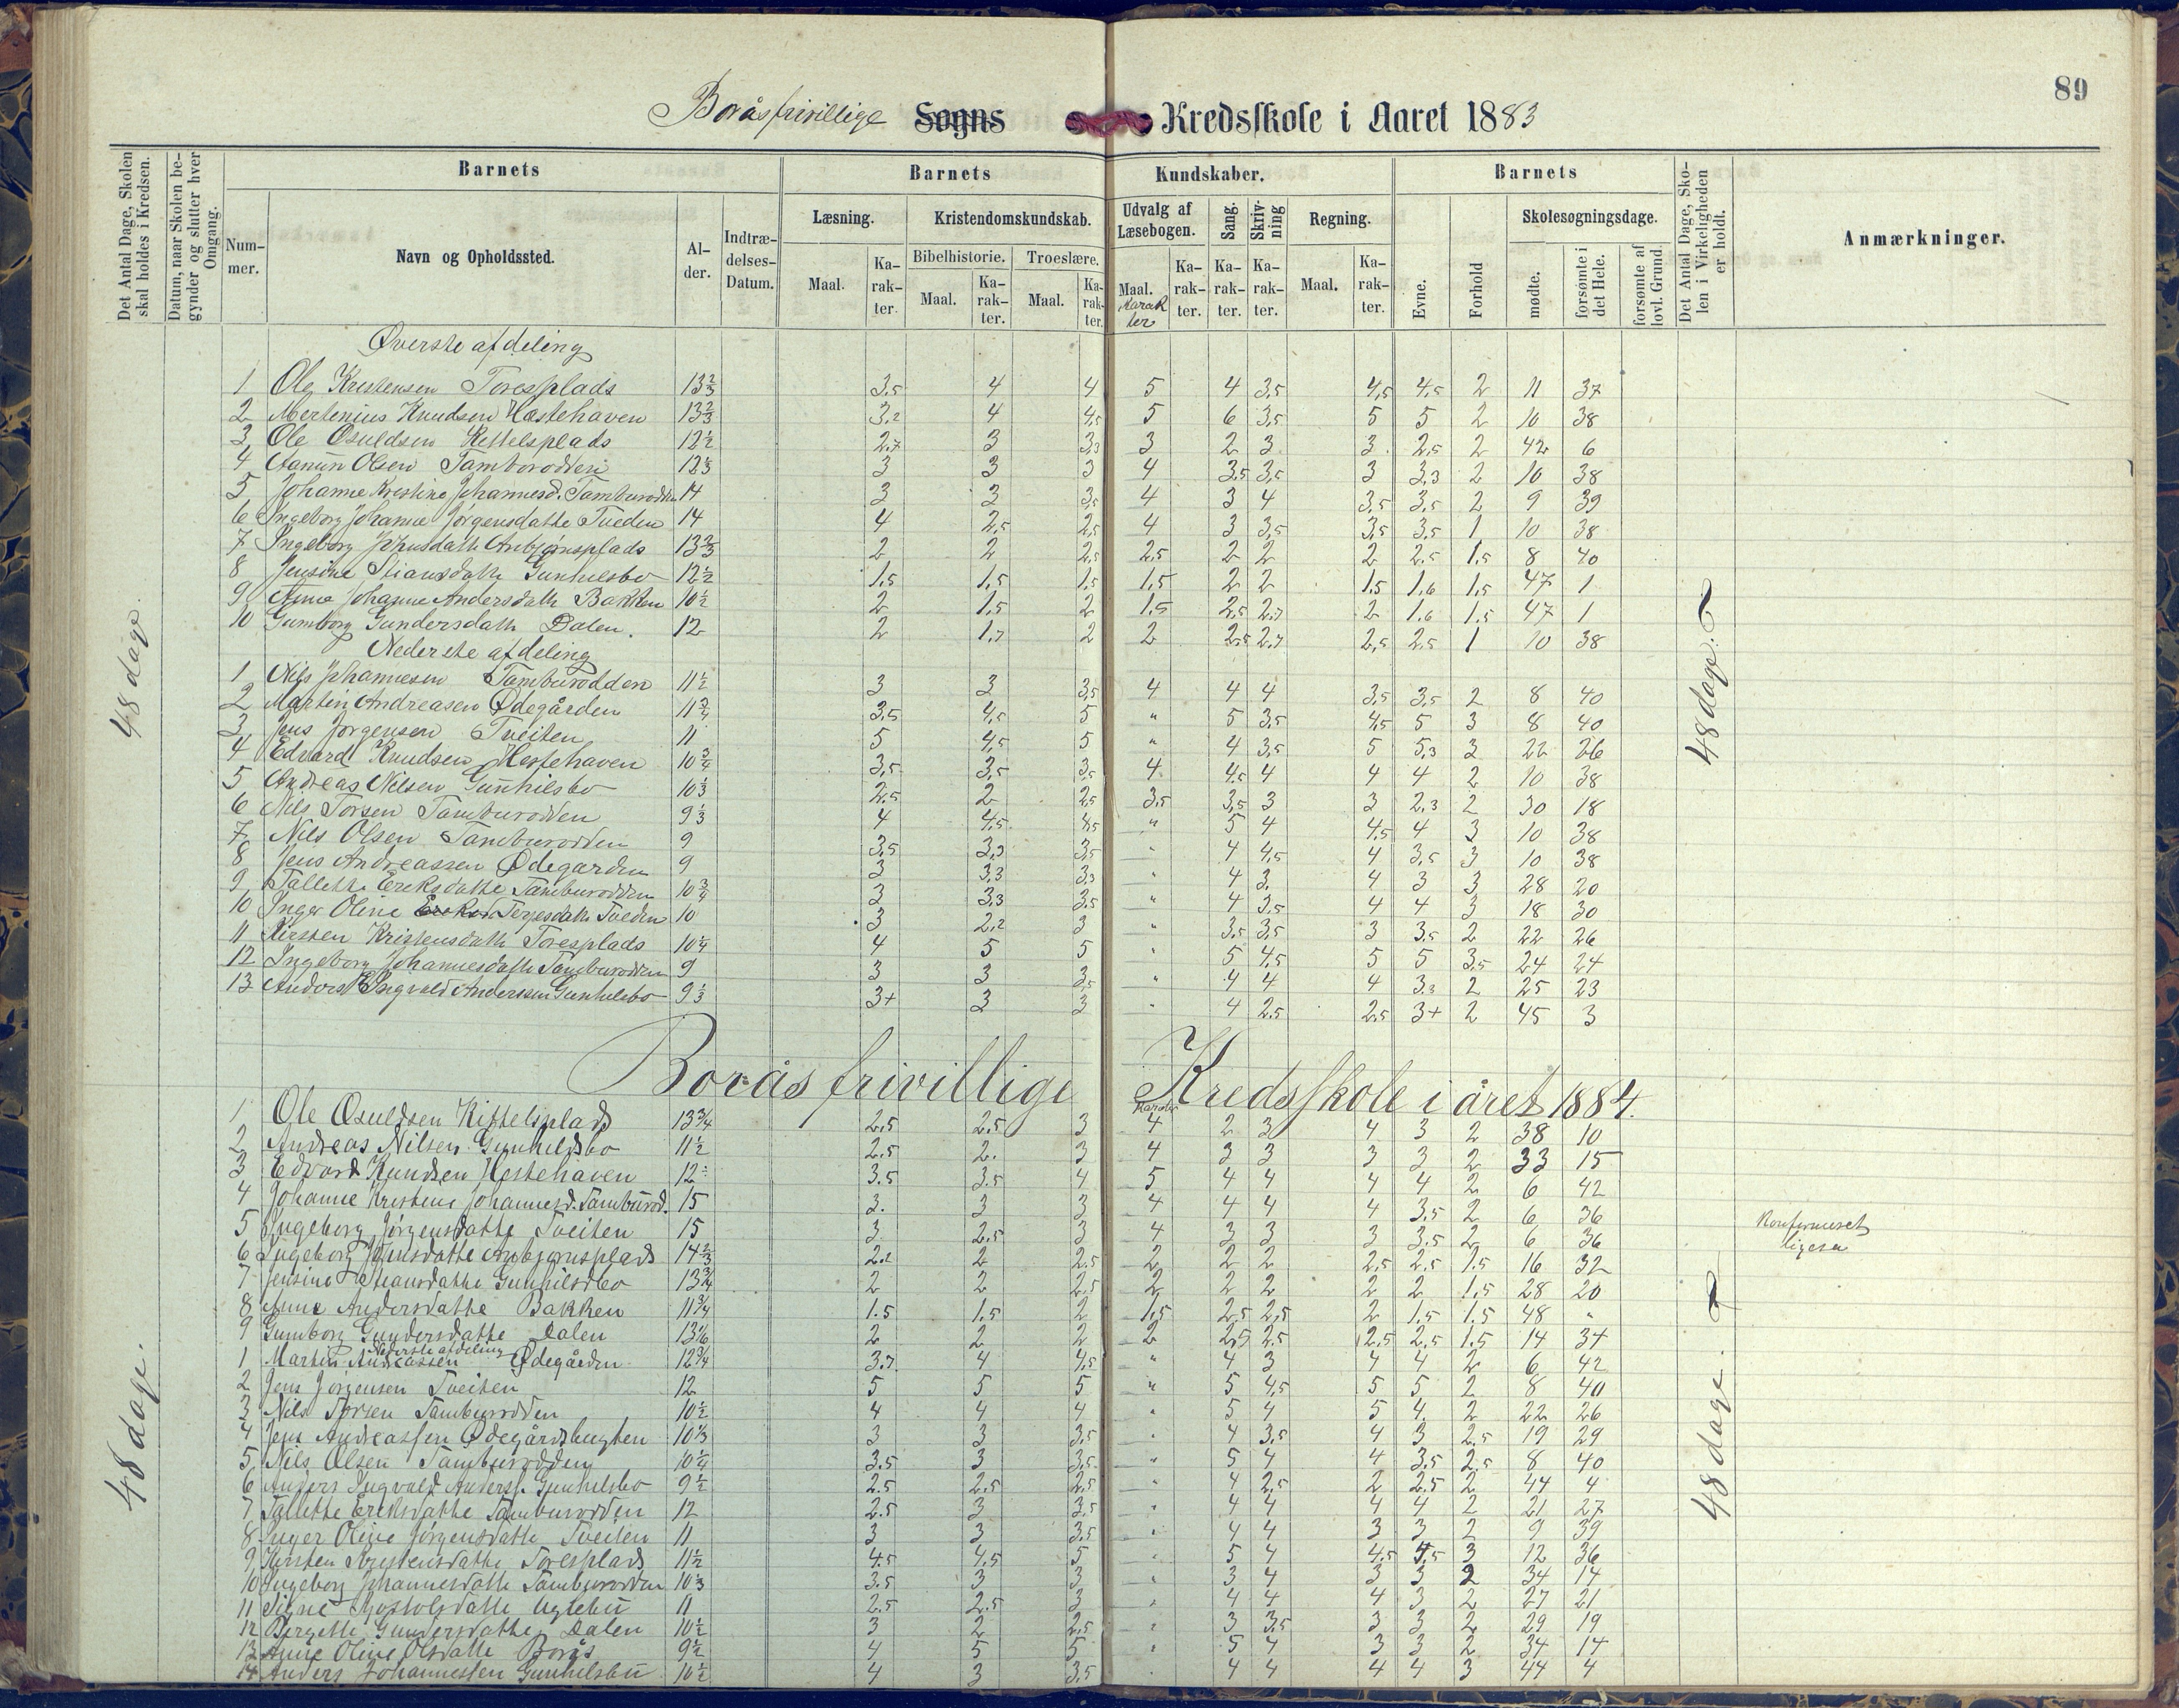 89
Boråsfrivillige Sogns Kredsskole i Aaret 1883
Det Antal Dage, Skolen skal holdes i Kredsen.
Datum, naar Skolen begynder og slutter hver Omgang.
Barnets
Nummer.
Navn og Opholdssted.
Alder.
Indtrædelses-Datum.
Barnets Kundskaber.
Læsning.
Maal.
Karakter.
Kristendomskundskab.
Bibelhistorie.
Maal.
Karakter.
Troeslære.
Maal.
Karakter.
Udvalg af Læsebogen.
Maal.
Karakter
Karakter.
Sang.
Karakter.
Skrivning
Karakter.
Regning.
Maal.
Karakter.
Barnets
Evne.
Forhold
Skolesøgningsdage.
mødte.
forsømte i det Hele.
forsømte af lovl. Grund.
Det Antal Dage, Skolen i Virkeligheden er holdt.
Anmærkninger.
48 dage.
48 dage.
Øverste afdeling
1 Ole Kristensen Toresplads 13 2/3 3,5 4 4 5 4 3,5 4,5 4,5 2 11 37
2 Mertenius Knudsen Hæstehaven 13 2/3 3,2 4 4,5 5 6 3,5 5 5 2 10 38
3 Ole Osuldsen Kittelsplads 12 1/2 2,7 3 3,3 3 2 3 3 2,5 2 42 6
4 Aanun Olsen Tamborodden 12 1/3 3 3 3 4 3,5 3,5 3 3,3 2 10 38
5 Johanne Kristine Johannesd. Tamburodden 14 3 3 3,5 4 3 4 3,5 3,5 2 9 39
6 Ingeborg Johanne Jørgensdatte Tveden 14 4 2,5 2,5 4 3 3,5 3,5 3,5 1 10 38
7 Ingeborg Jensdatte Anbjørnsplads 13 2/3 2 2 2,5 2,5 2 2 2 2,5 1,5 8 40
8 Jensine Stiansdatte Gunhilsbo 12 1/2 1,5 1,5 1,5 1,5 2 2 1,5 1,6 1,5 47 1
9 Anne Johanne Andersdatte Bakken 10 1/2 2 1,5 2 1,5 2,5 2,7 2 1,6 1,5 47 1
10 Gumborg Gundersdatte Dalen. 12 2 1,7 2 2 2,5 2,7 2,5 2,5 1 10 38
Nederste afdeling
1 Nils Johannesen Tamburodden 11 1/2 3 3 3,5 4 4 4 3,5 3,5 2 8 40
2 Martin Andreasen Ødegården 11 3/4 3,5 4,5 5 " 5 3,5 4,5 5 3 8 40
3 Jens Jørgensen Tveiten 11 5 4,5 5 " 4 3,5 5 5,3 3 22 26
4 Edvard Knudsen Hestehaven 10 3/4 3,5 3,5 3,5 4 4,5 4 4 4 2 10 38
5 Andreas Nilsen Gunhilsbo 10 1/3 2,5 2 2,5 3,5 3,5 3 3 2,3 2 30 18
6 Nils Torsen Tamburodden 9 1/3 4 4,5 4,5 " 5 4 4,5 4 3 10 38
7 Nils Olsen Tamburodden 9 3,5 3,3 3,5 " 4 4,5 4 3,5 3 10 38
8 Jens Andreassen Ødegarden 9 3 3,3 3,3 " 4 3 4 3 3 28 20
9 Tallette Eriksdatte Tamburodden 10 3/4 3 3,3 3,5 " 4 3,5 4 4 3 18 30
10 Inger Oline Terjesdatte Tveden 10 3 2,2 3 " 3,5 3,5 3 3,5 2 22 26
11 Kirsten Kristensdatte Toresplads 10 1/4 4 5 5 " 5 4,5 5 5 3,5 24 24
12 Ingeborg Johannesdatte Tamburodden 9 3 3 3,5 " 4 4 4 3,3 2 25 23
13 Anders Ingvald Anderssen Gunhilsbo 9 1/3 3+ 3 3 " 4 2,5 2,5 3+ 2 45 3
Borås frivillige Kredsskole i året 1884.
Karakter
48 dage.
48 dage.
1 Ole Osuldsen Kittelsplads 13 3/4 2.5 2.5 3 4 2 3 4 3 2 38 10
2 Andreas Nilsen Gunhildsbo 11 1/2 2.5 2. 3 4 3 3 3 3 2 33 15
3 Edvard Knudsen Hestehaven 12 3.5 3.5 4 5 4 4 4 4 2 6 42
4 Johanne Kristene Johannesd. Tamburod. 15 3. 3 3 4 4 4 4 3,5 2 6 36 Konfirmeret
5 Ingeborg Jørgensdatte Tveiten 15 3 2.5 3 4 3 3 3 3.5 2 6 36 ligesaa
6 Ingeborg Jensdatte Anbjørnsplads 14 2/3 2.2 2 2.5 2 2 2 2,5 2,5 1.5 16 32
7 Jensine Stiansdatte Gunhilsbo 13 3/4 2 2 2.5 2 2 2 2 2 1,5 28 20
8 Anne Andersdatte Bakken 11 3/4 1.5 1,5 2 1,5 2,5 2,5 2 1.5 1.5 48 "
9 Gumborg Gundersdatte Dalen 13 1/6 2 2 2 2 2,5 2.5 2,5 2,5 1.5 14 34
Nederste afdeling
1 Martin Andreassen Ødegården 12 3/4 3.7 4 4,5 " 4 3 4 4 2 6 42
2 Jens Jørgensen Tveiten 12 5 5 5 " 5 4,5 5 5 2 8 40
3 Nils Torsen Tamburodden 10 1/2 4 4 4 " 5 4 5 4. 2 22 26
4 Jens Andreassen Ødegårdsbugten 10 1/3 3 3 3,5 " 4 3,5 4 3 2.5 19 29
5 Nils Olsen Tamburodden 10 1/4 3.5 3 3,5 " 5 4 4 3,5 2.5 8 40
6 Anders Ingvald Anderss. Gunhilsbo 9 1/2 2.5 2.5 2,5 " 4 2,5 2 2,5 2 44 4
7 Tallette Eriksdatte Tamburodden 12 2.5 3 3,5 " 4 4 4 4 2 21 27
8 Inger Oline Jørgensdatte Tveiten 11 3 3 3,5 " 4 4 3 3 2 9 39
9 Kirsten Kristensdatte Toresplads 11 1/2 4.5 4,5 5 " 5 4 4.5 4,5 3 12 36
10 Ingeborg Johannesdatte Tamburodden 10 1/3 3.5 3 3 " 3 4 3 3 2 34 14
11 Signe 11 2.5 2.5 3 " 4 4 4 3 2 27 21
12 Bergette Gundersdatte Dalen 10 1/2 3 2 2,5 " 3 3,5 3 3 2 29 19
13 Anne Oline Olsdatte Borås 9 1/2 4 5 5 " 5 4 3 3 2 34 14
14 Anders Johannessen Gunhilsbu 10 1/2 4 3 3,5 " 4 4 4 4 3 44 4